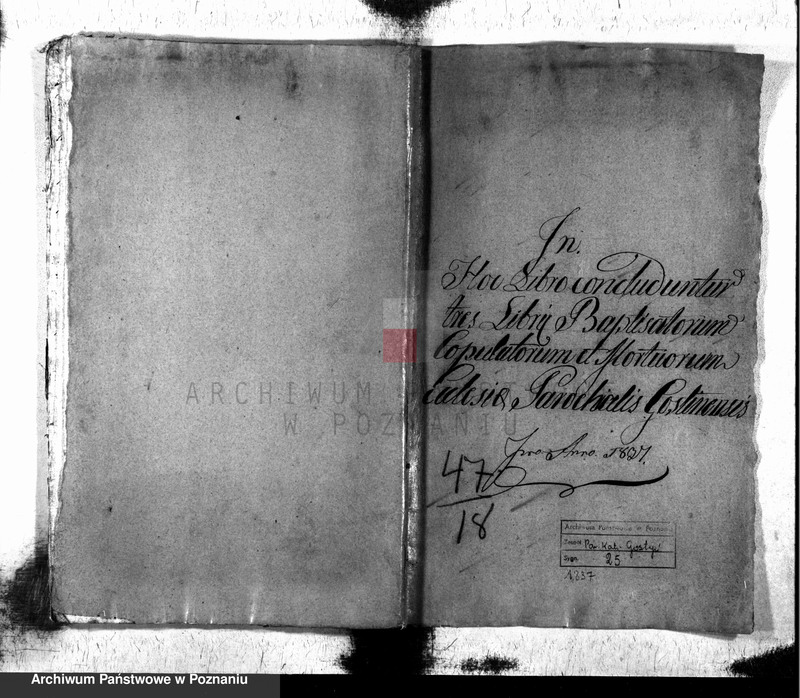 In.
Hoc Libro concluduntur
tres Libri Baptisatorum
Copulatorum et Mortuorum
Eclesiæ Parochialis Gostinensis
pro Anno. 1837.
47
18
Archiwum Państwowe w Poznaniu
Zespół Par. Kat. Gostyń
Sygn. 25
1837
ARCHIWUM PAŃSTWOWE
W POZNANIU
Archiwum Państwowe w Poznaniu